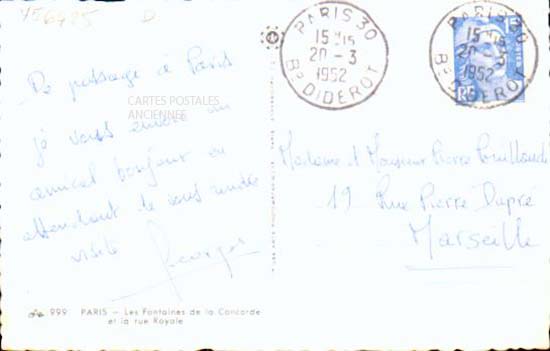 De passage à Paris
je vous envoie un
amical bonjour en
attendant de vous rendre
visite Georges
CARTES POSTALES
ANCIENNES
999 PARIS — Les Fontaines de la Concorde
et la rue Royale
PARIS 30
15 H 15
20 - 3
1952
Bd DIDEROT
PARIS 30
15 H 15
20 - 3
1952
Bd DIDEROT
15F
RF
Madame et Monsieur Pierre
19 Rue Pierre Dupré
Marseille